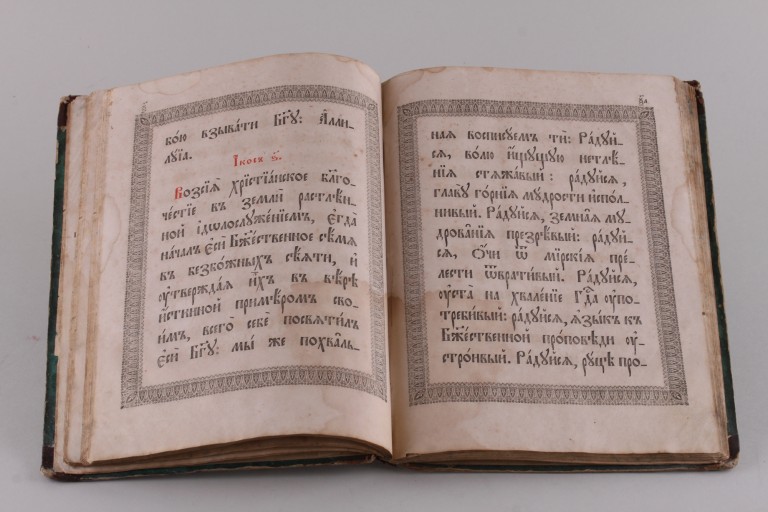 бою взывати Бг҃у: Алли-
лꙋіа.
Ікосъ ѕ҃.
Возсїѧ̀ хрїстїа́нское бл҃го-
че́стїе въ землѝ растлѣ́н-
ной і҆дѡлослꙋже́нїемъ, є҆гда̀
нача́лъ є҆сѝ бж҃е́ственное сѣ́мѧ
въ безбо́жныхъ сѣ́ѧти, и҆
ᲂу҆твержда́ѧ и҆̀хъ въ вѣ́рѣ
и҆́стинной примѣ́ромъ сво-
и́мъ, всего̀ себѐ посвѧти́лъ
є҆сѝ бг҃ꙋ: мы́ же похва́ль-
ꙗ҃
наѧ воспꙋ́емъ тѝ: Ра́дꙋй-
сѧ, во́лю и҆́щꙋщꙋю нетлѣ́-
нїѧ стѧжа́вый: ра́дꙋйсѧ,
главꙋ̀ го́рнїѧ мꙋ́дрости и҆спо́л-
нивый. Ра́дꙋйсѧ, земна́ѧ мꙋ-
дрова́нїѧ презрѣ́вый: ра́дꙋй-
сѧ, ѻ҆́чи ѿ мїрскі́ѧ пре-
лести ѿврати́вый. Ра́дꙋйсѧ,
ᲂу҆ста̀ на хвале́нїе гдⷭ҇а ᲂу҆по-
треби́вый: ра́дꙋйсѧ, ѧ҆зы́къ къ
бж҃е́ственной про́повѣди ᲂу҆-
стро́ивый. Ра́дꙋйсѧ, рꙋ́цѣ про-